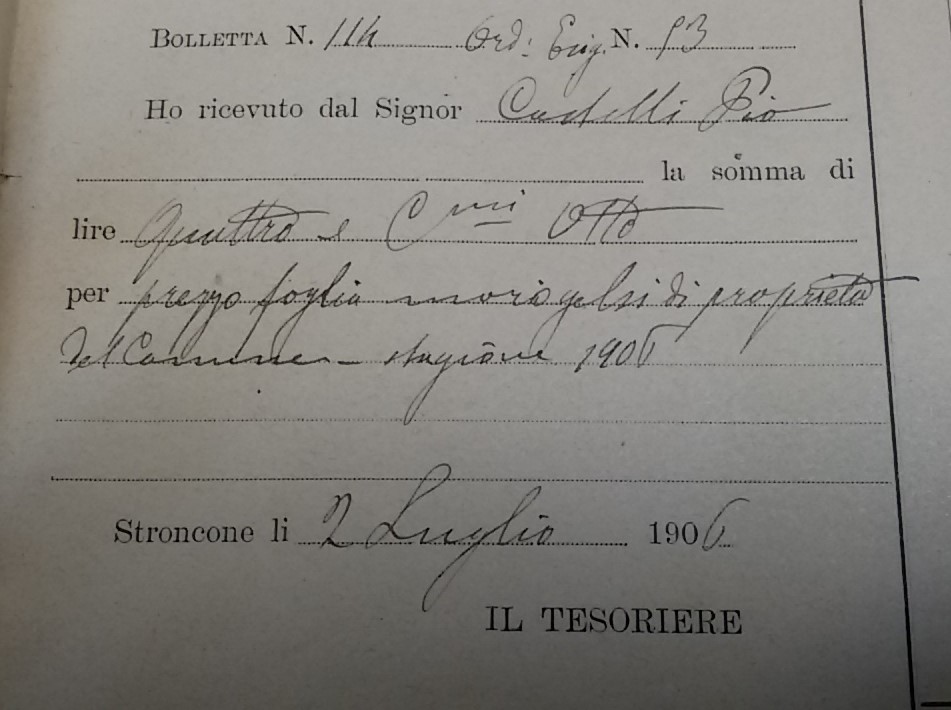 BOLLETTA N. 114 Ord: Esig. N. 53
Ho ricevuto dal Signor Castelli Pio
la somma di
lire Quattro e Cmi Otto
per prezzo foglia mori gelsi di proprietà
del Comune - stagione 1906
Stroncone li 2 Luglio 1906
IL TESORIERE